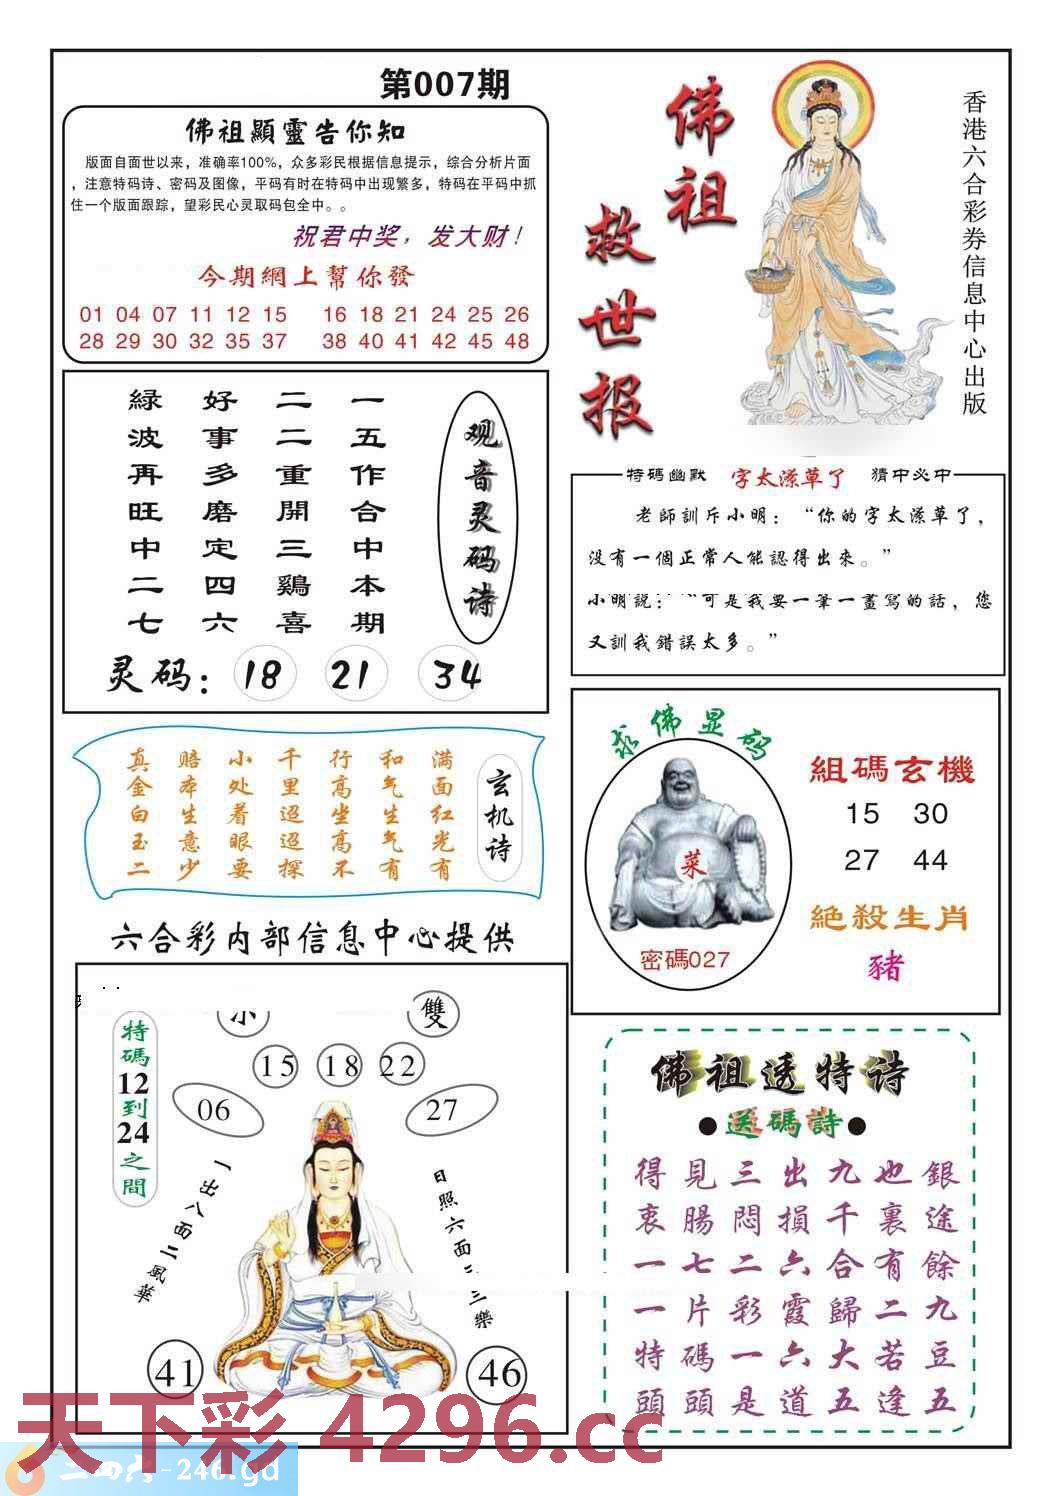 第007期
佛祖顯靈告你知
版面自面世以来，准确率100%，众多彩民根据信息提示，综合分析片面
，注意特码诗、密码及图像，平码有时在特码中出现繁多，特码在平码中抓
住一个版面跟踪，望彩民心灵取码包全中。。
祝君中奖，发大财！
今期網上幫你發
01 04 07 11 12 15 16 18 21 24 25 26
28 29 30 32 35 37 38 40 41 42 45 48
佛祖
救世报
香港六合彩券信息中心出版
观音灵码诗
一五作合中本期
二二重開三鷄喜
好事多磨定四六
緑波再旺中二七
灵码：18 21 34
特碼幽默 字太潦草了 猜中必中
老師訓斥小明：“你的字太潦草了，
没有一個正常人能認得出來。”
小明説：“可是我要一筆一畫寫的話，您
又訓我錯誤太多。”
玄机诗
满面红光有
和气生气有
行高坐高不
千里迢迢探
小处着眼要
赔本生意少
真金白玉二
求佛显码
菜
密碼027
組碼玄機
15 30
27 44
絶殺生肖
豬
六合彩内部信息中心提供
特碼12到24之間
小
雙
15 18 22
06 27
一出八面二風華
日照六面二三樂
41 46
佛祖透特诗
●送碼詩●
得見三出九也銀
衷腸悶損千裏途
一七二六合有餘
一片彩霞歸二九
特碼一六大若豆
頭頭是道五逢五
天下彩 4296.cc
二四六-246.gd